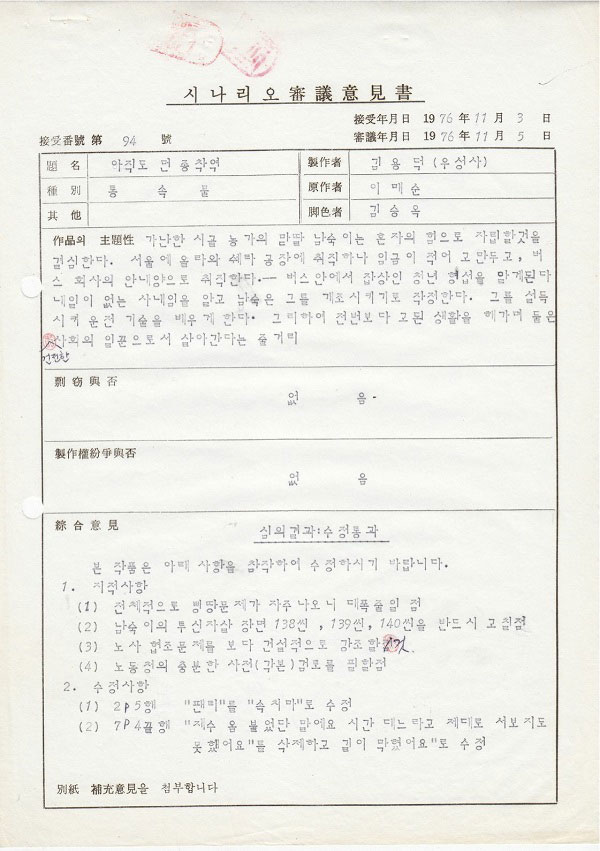 시나리오審議意見書
接受年月日 1976年 11月 3日
接受番號 第 94 號
審議年月日 1976年 11月 5日
題名 아직도 먼 종착역
製作者 김용덕(우성사)
種別 통속물
原作者 이매순
其他
脚色者 김승옥
作品의 主題性 가난한 시골 농가의 맏딸 남숙이는 혼자의 힘으로 자립할것을
결심한다. 서울에 올라와 쉐타 공장에 취직하나 임금이 적어 고만두고, 버
스 회사의 안내양으로 취직한다.— 버스안에서 잡상인 청년 형섭을 알게된다
내일이 없는 사내임을 알고 남숙은 그를 개조시키기로 작정한다. 그를 설득
시켜 운전 기술을 배우게 한다. 그리하여 전번보다 고된 생활을 해가며 둘은
사회의 일꾼으로서 살아간다는 줄거리
건전한
剽窃與否
없 음-
製作權紛爭與否
없 음
綜合意見
심의결과:수정통과
본 작품은 아래 사항을 참작하여 수정하시기 바랍니다.
1. 지적사항
(1) 전체적으로 삥땅문제가 자주나오니 대폭줄일 점
(2) 남숙이의 투신자살 장면 138씬 ,139씬, 140씬을 반드시 고칠점
(3) 노사 협조문제를 보다 건설적으로 강조할것
(4) 노동청의 충분한 사전(각본)검토를 필할점
2. 수정사항
(1) 2P5행 "팬티"를 "속치마"로 수정
(2) 7P4끝행 "재수 옴 붙었단 말에요 시간 대느라고 제대로 서보지도
못했어요"를 삭제하고 길이 막혔어요"로 수정
別紙 補充意見을 첨부합니다